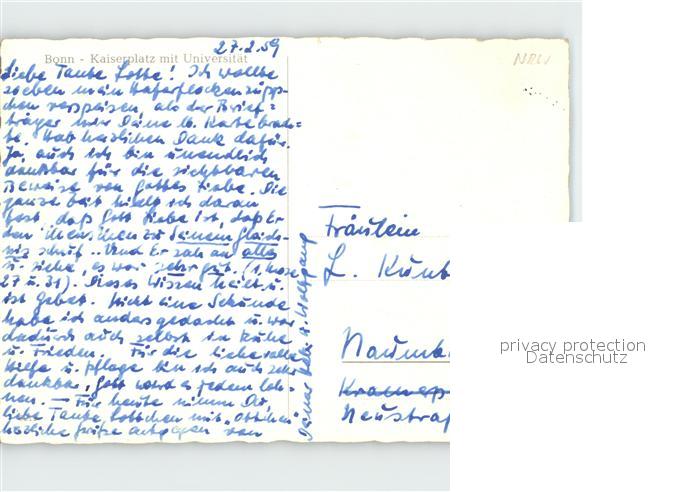 27.2.59
Bonn - Kaiserplatz mit Universität
NRW
Liebe Tante Lotte! Ich wollte
soeben mein Haferflockensüpp-
chen verspeisen, als der Brief-
träger mir Deine lb. Karte brach-
te. Hab herzlichen Dank dafür.
Ja, auch ich bin unendlich
dankbar für die sichtbaren
Beweise von Gottes Liebe. Die
ganze Zeit hielt ich daran
fest, daß Gott Liebe ist, daß Er
den Menschen zu Seinem Gleich-
nis schuf.. Und Er sah an alles
u. siehe, es war sehr gut. (1. Mose
27 u. 31). Dieses Wissen heilt u.
ist Gebet. Nicht eine Sekunde
habe ich anders gedacht u. war
dadurch auch selbst in Ruhe
u. Frieden. Für die liebevolle
Hilfe u. Pflege bin ich auch sehr
dankbar, Gott word es jedem loh-
nen. — Für heute nimm Du,
liebe Tante Lottchen mit
herzliche Grüße entgegen von
Deiner u. Wolfgang
Fräulein
L. Kunt
Naumb
Kramerp
Neustraß
privacy protection
Datenschutz